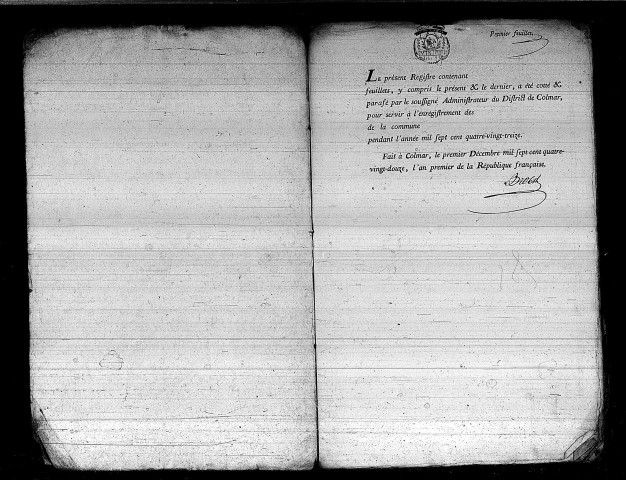 Premier feuillet.
LE préſent Regiſtre contenant
feuillets, y compris le préſent & le dernier, a été cotté &
parafé par le ſouſſigné Adminiſtrateur du Diſtrict de Colmar,
pour ſervir à l'enrégiſtrement des
de la commune
pendant l'année mil ſept cent quatre-vingt-treize.
Fait à Colmar, le premier Décembre mil ſept cent quatre-
vingt-douze, l'an premier de la République françaiſe.